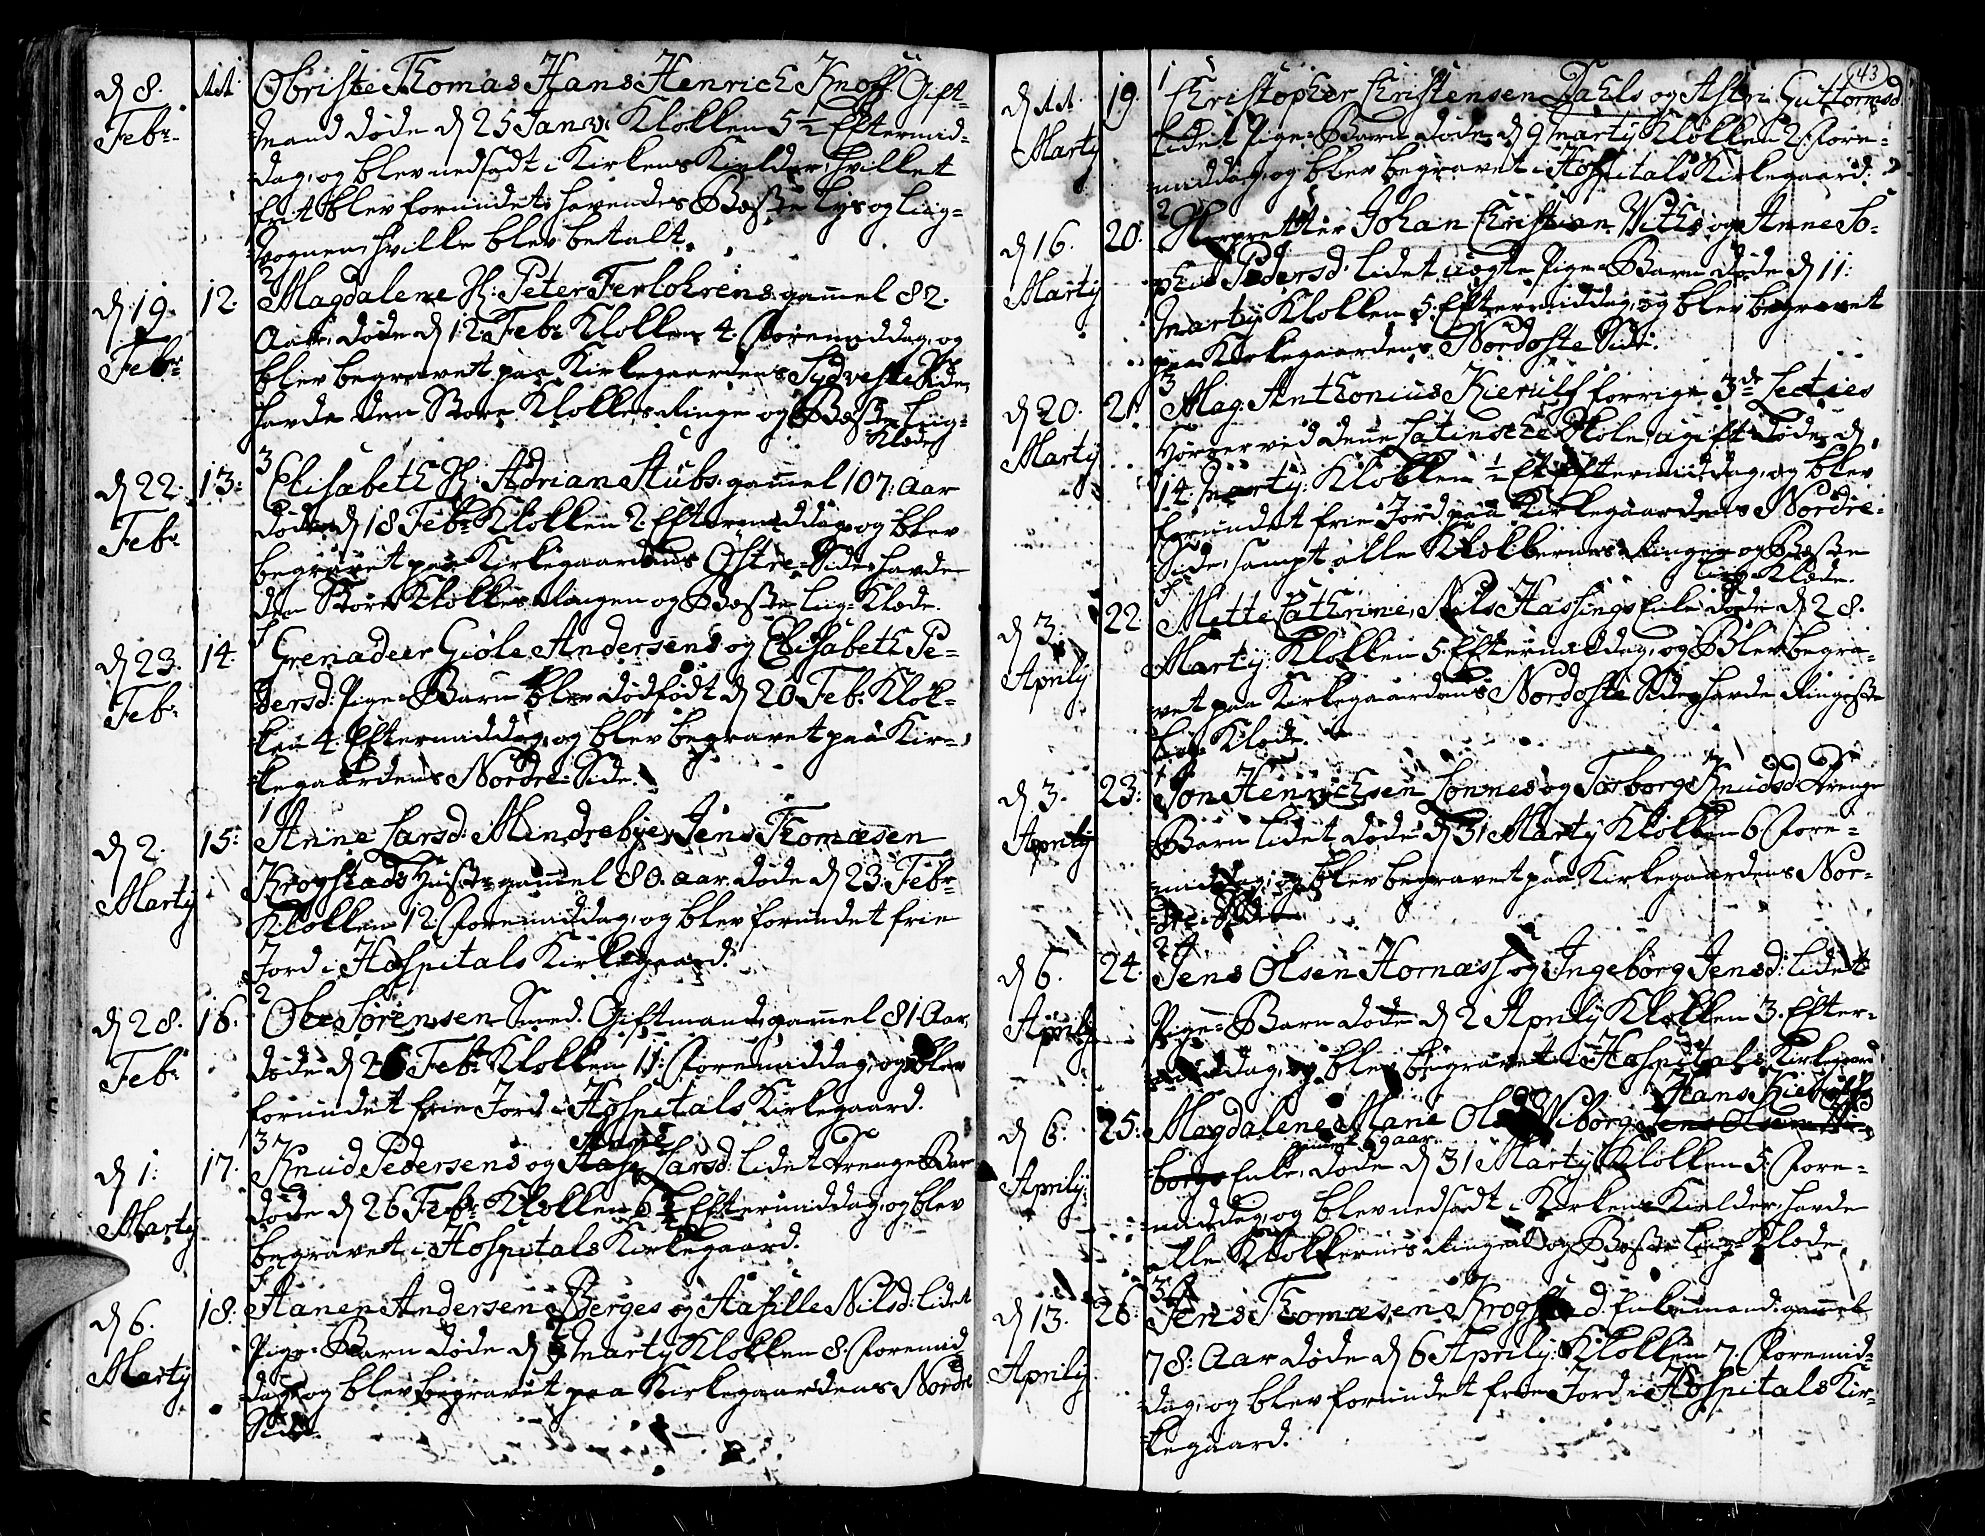 d 8. Febr. 11. Obriste Thomas Hans Henrich Knoff Gift-
Mand døde d 25 Janv: Klokken 5½ Eftermid-
dag, og blev nedsadt i Kirkens Kielder, hvilket
frit blev forundet, havendes Beste Lys og Liig-
Vognen, hvilke blev betalt.
d. 19. Febr. 12. Magdalene Sl: Peter Ferlohrens gamel 82.
Aar, døde d 12 Febr. Klokken 4. Foremiddag, og
blev begravet paa Kirkegaardens Sydveste Side,
havde den Store Klokkes Ringe og Beste Liig-
Klæde
d 22. Febr. 13. Elisabeth Sl: Adrian Stubs. gamel 107: Aar
døde d 18 Febr. Klokken 2. Eftermiddag og blev
begravet paa Kirkegaardens Østre-Side, havde
den Store Klokkes Ringen og Beste Liig-Klæde.
d 23. Febr. 14. Grenadeer Giøle Andersens og Elisabeth Pe-
dersd: Pige-Barn blev dødfødt d 20 Feb: Klok-
ken 4. Eftermiddag, og blev begravet paa Kir-
kegaardens Nordre-Side.
d 2. Marty 15. Anne Larsd: Mindrebye, Jens Thomæsen
Krogstads Huster gamel 80. aar. døde d 23. Febr.
Klokken 12. Foremiddag, og blev forundet frie
Jord i Hospitals Kirkegaard.
d 28. Febr. 16. Ole Sørensen Smed. Giftmand, gamel 81 Aar,
døde d 26 Febr. Klokken 11: Foremiddag, og blev
forundet frie Jord i Hospitals Kirkegaard.
Anne
d 1: Marty 17. Knud Pedersens og Larsd: lidet Drenge-Bar
døde d 26 Febr. Klokken 6½ Eftermiddag, og blev
begravet i Hospitals Kirkegaard.
d 6. Marty 18. Hanen Andersen Berges og Aasille Nilsd: lidet
Pige-Barn døde d Marty Klokken 8. Foremid-
dag, og blev begravet paa Kirkegaardens Nordre
Side.
43
d 11. Marty 19. Christopher Christensen Dahls og Astri Guttormsd
lidet Pige-Barn døde d 9 Marty Klokken 2. Fore-
middag, og blev begravet i Hospitals Kirkegaard.
d 16. Marty 20. Johan Christian Withs og Anne So-
phie Pedersd. lidet uægte Pige-Barn døde d 11:
Marty Klokken 5. Eftermiddag, og blev begravet
paa Kirkegaardens Nordøste Side.
d 20. Marty 21. Mag: Anthonius Kierulf forrige 3de Lecties
Hører ved denne Latinsche Skole, ugift døde d.
14. Marty. Klokken ½ Et Eftermiddag, og blev
forundet frie Jord paa Kirkegaardens Nordre-
Side, sampt alle Klokkernes Ringen og Beste
Liig-Klæde.
d 3. Aprily 22. Mette Cathrine, Nils Hassings Enke døde d 28.
Marty: Klokken 5. Eftermiddag, og Blev begra-
vet paa Kirkegaardens Nordøste Side, havde Ringeste
Liig-Klæde.
d 3. Aprily 23. Jon Henrichsen Lonnes og Torborg Knudsd Drenge
Barn lidet døde d 31 Marty Klokken 6 Fore-
middag, og blev begravet paa Kirkegaardens Nor-
dre-Side.
d 6. Aprily 24. Jens Olsen Hornæs og Ingeborg Jensd: lidet
Pige-Barn døde d 2 Aprily Klokken 3. Efter-
middag, og blev begravet i Hospitals Kirkegaard
Hans
d 6. Aprily 25. Magdalene Marie Wiborg Jens Olsen Wi-
gamel 69 aar.
borgs Enke, døde d 31 Marty Klokken 5 Fore-
middag, og blev nedsadt i Kirkens Kielder, havde
alle Klokkernes Ringen og Beste Liig-Klæde.
d 13. Aprily 26. Jens Thomæsen Krogstad. Enkemand. gamel
78: Aar døde d 6 Aprily. Klokken 7. Foremid-
dag, og blev forundet frie Jord i Hospitals Kir-
kegaard.